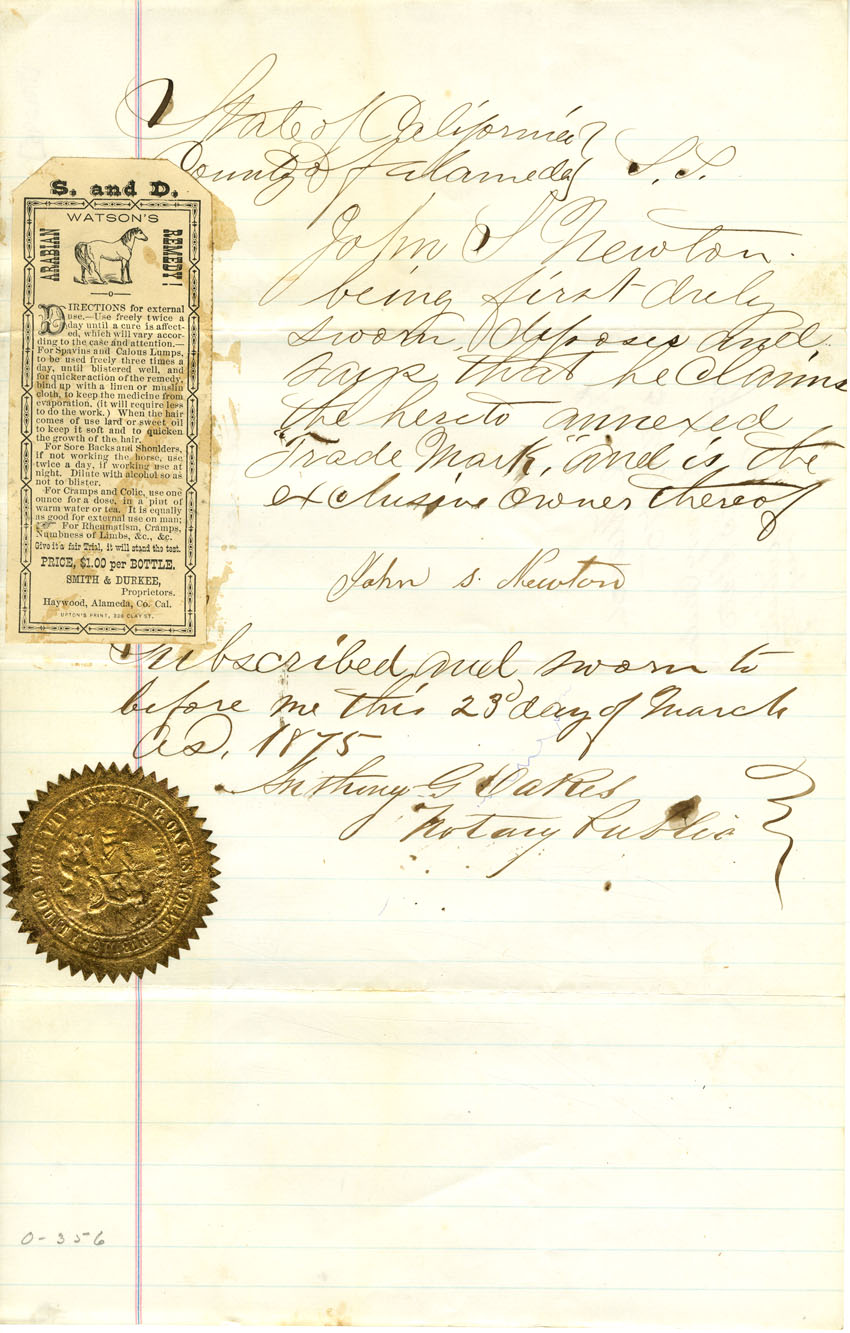 State of California
County of Alameda S.S.
John S Newton
being first duly
sworn, deposes and
says that he claims
the hereto annexed
"Trade Mark," and is the
exclusive owner thereof
John S. Newton
Subscribed and sworn to
before me this 23d day of March
AD, 1875
Anthony G Oakes
Notary Public
S. and D.
WATSON'S
ARABIAN
REMEDY!
DIRECTIONS for external
use.—Use freely twice a
day until a cure is affect-
ed, which will vary accor-
ding to the case and attention.—
For Spavins and Calous Lumps,
to be used freely three times a
day, until blistered well, and
for quicker action of the remedy,
bind up with a linen or muslin
cloth, to keep the medicine from
evaporation. (it will require less
to do the work.) When the hair
comes of use lard or sweet oil
to keep it soft and to quicken
the growth of the hair.
For Sore Backs and Shoulders,
if not working the horse, use
twice a day, if working use at
night. Dilute with alcohol so as
not to blister.
For Cramps and Colic, use one
ounce for a dose, in a pint of
warm water or tea. It is equally
as good for external use on man;
☞ For Rheumatism, Cramps,
Numbness of Limbs, &c., &c.
Give it a fair Trial, it will stand the test.
PRICE, $1.00 per BOTTLE.
SMITH & DURKEE,
Proprietors.
Haywood, Alameda, Co. Cal.
UPTON'S PRINT, CLAY ST.
G. OAKES NOTARY PUBLIC
0-356